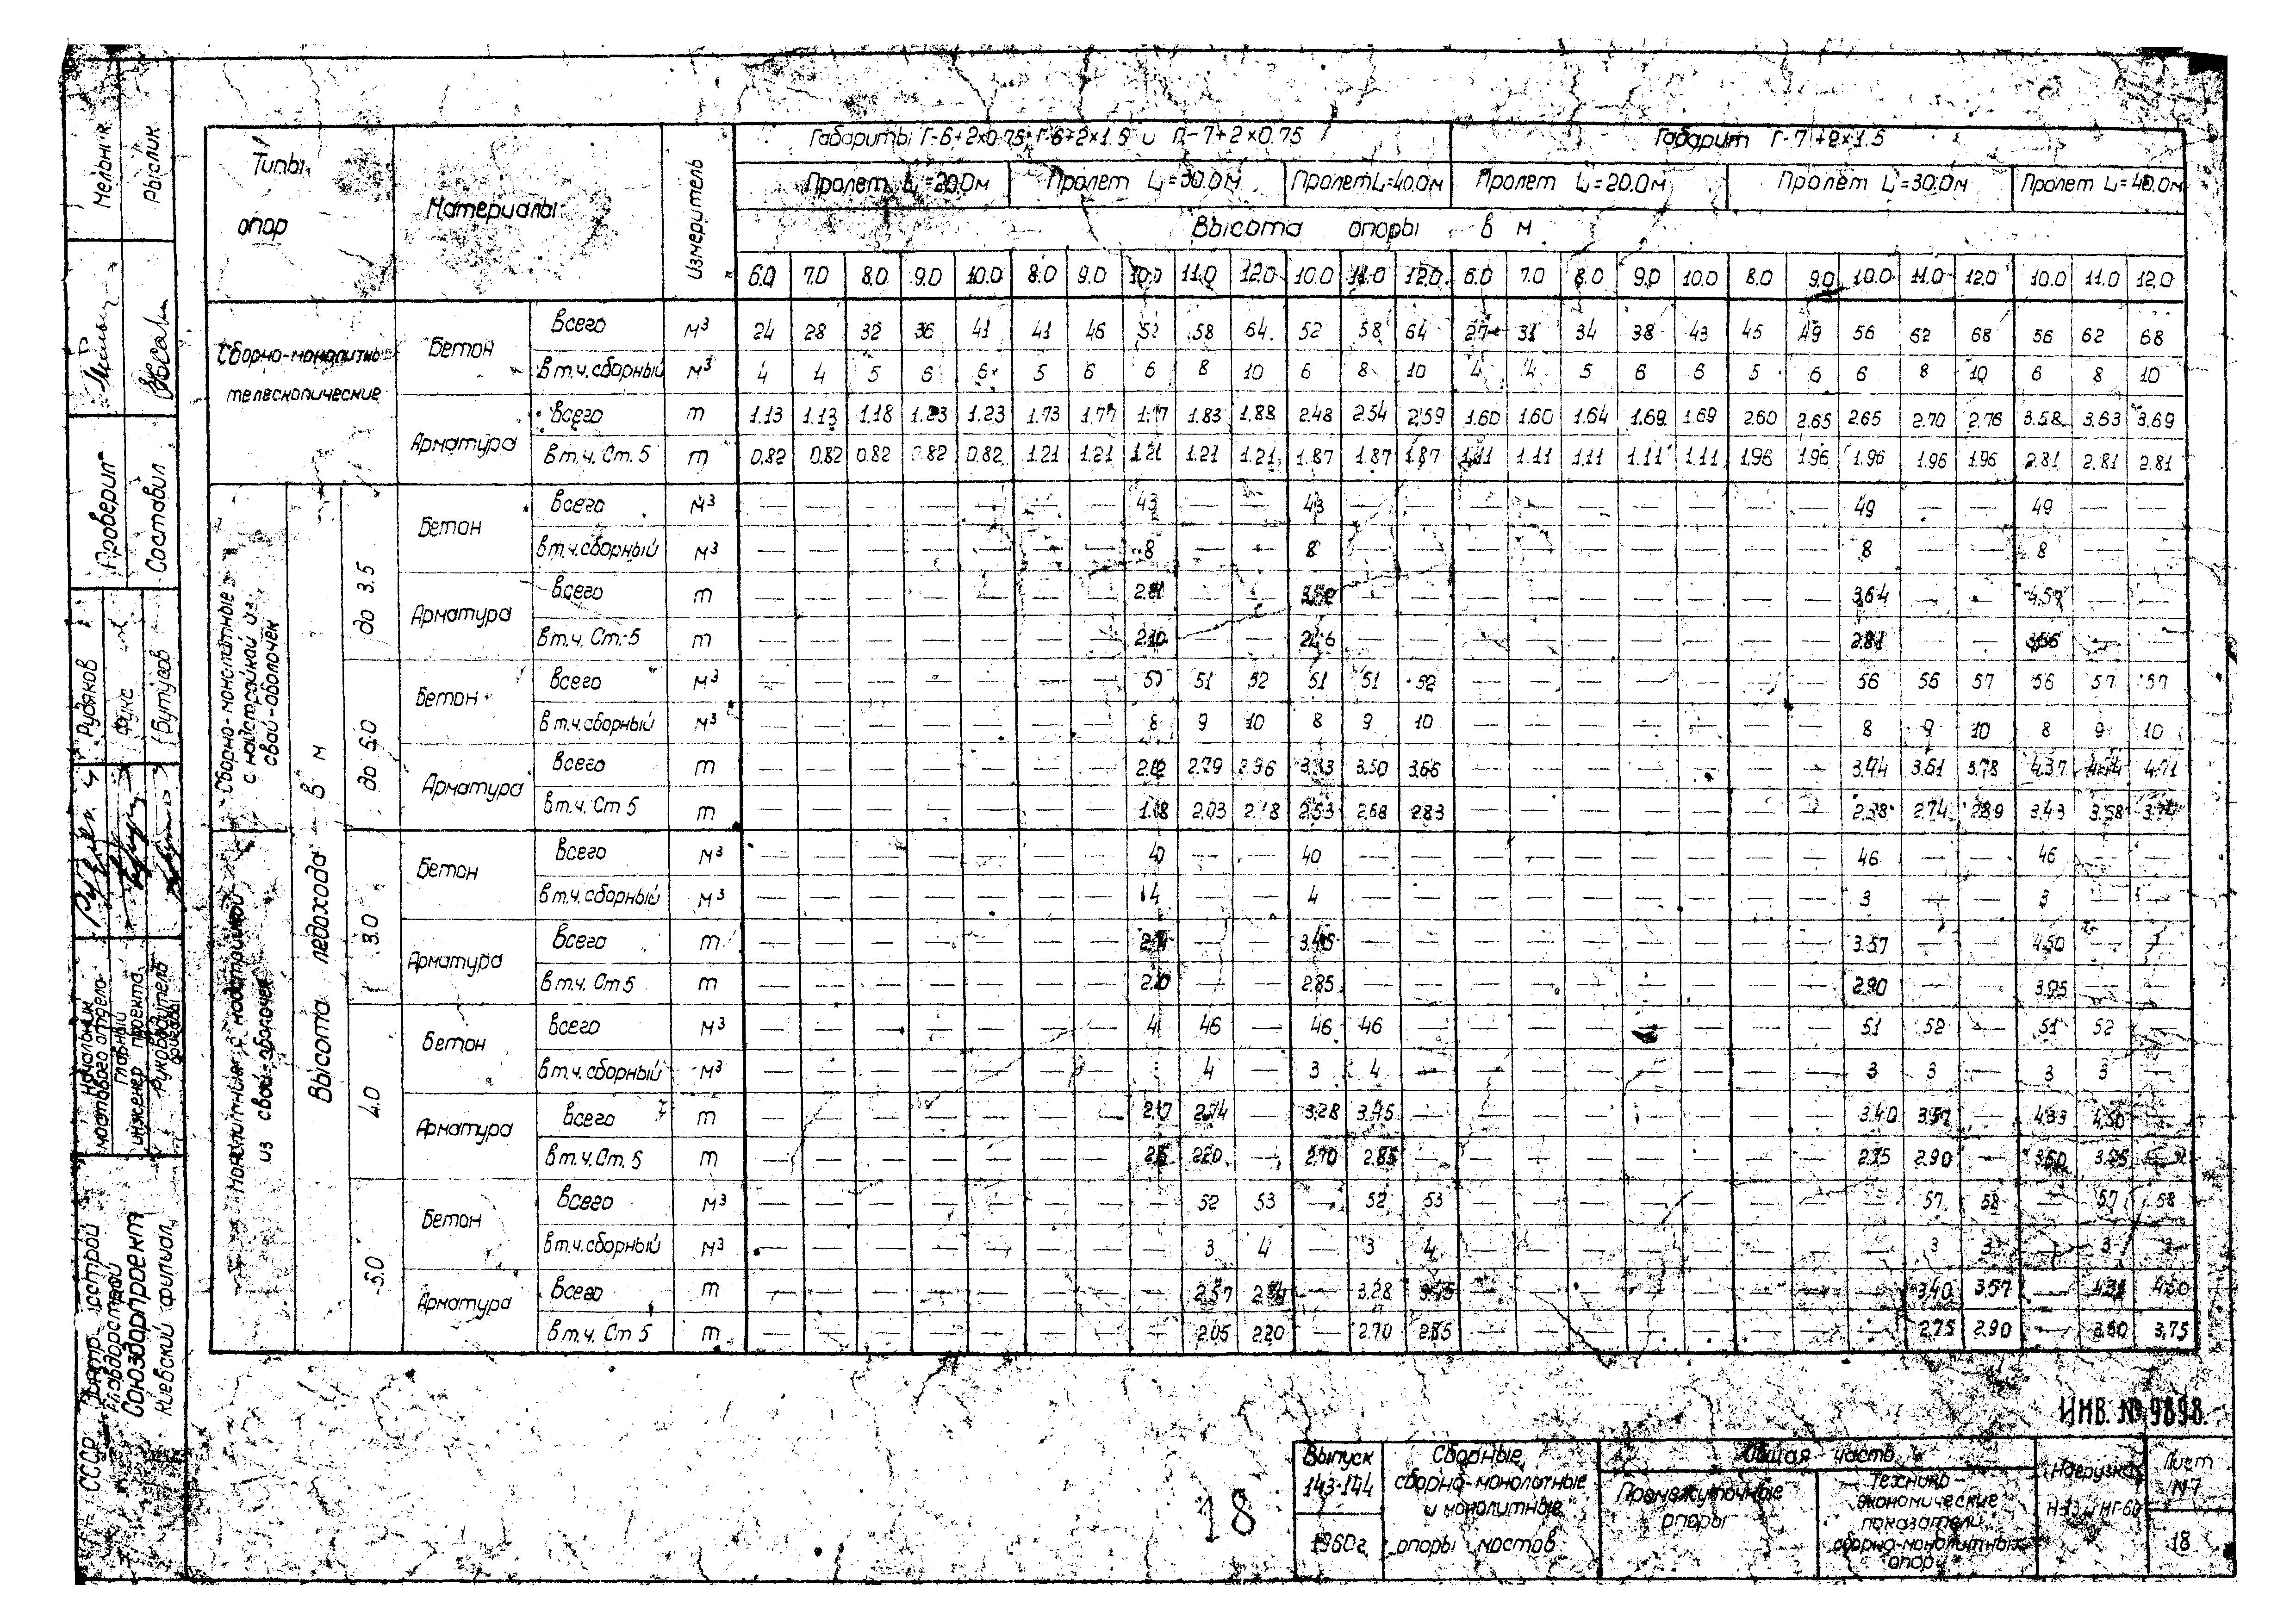 Типы опор
Материалы
Измеритель
Габариты Г-6+2×0.75; Г-6+2×1.5 и Г-7+2×0.75
Габарит Г-7+2×1.5
Пролет L=20.0м Пролет L=30.0м Пролет L=40.0м Пролет L=20.0м Пролет L=30.0м Пролет L=40.0м
Высота опоры в м
6.0 7.0 8.0 9.0 10.0 8.0 9.0 10.0 11.0 12.0 10.0 11.0 12.0 6.0 7.0 8.0 9.0 10.0 8.0 9.0 10.0 11.0 12.0 10.0 11.0 12.0
Сборно-монолитные телескопические
Бетон
Всего м³ 24 28 32 36 41 41 46 52 58 64 52 58 64 27 31 34 38 43 45 49 56 62 68 56 62 68
в т.ч. сборный м³ 4 4 5 6 6 5 6 6 8 10 6 8 10 4 4 5 6 6 5 6 6 8 10 6 8 10
Арматура
всего т 1.13 1.13 1.18 1.23 1.23 1.73 1.77 1.77 1.83 1.88 2.48 2.54 2.59 1.60 1.60 1.64 1.69 1.69 2.60 2.65 2.65 2.70 2.76 3.58 3.63 3.69
в т.ч. Ст. 5 т 0.82 0.82 0.82 0.82 0.82 1.21 1.21 1.21 1.21 1.21 1.87 1.87 1.87 1.11 1.11 1.11 1.11 1.11 1.96 1.96 1.96 1.96 1.96 2.81 2.81 2.81
Сборно-монолитные с надстройкой из свай-оболочек
Монолитные с надстройкой из свай-оболочек
Высота ледохода в м
до 3.5
Бетон
Всего м³ — — — — — — — 43 — — 43 — — — — — — — — — 49 — — 49 — —
в т.ч. сборный м³ — — — — — — — 8 — — 8 — — — — — — — — — 8 — — 8 — —
Арматура
всего т — — — — — — — — — — — — — — — — — 3.64 — — 4.57 — —
в т.ч. Ст. 5 т — — — — — — — 2.10 — — — — — — — — — — — 2.81 — — — —
до 5.0
Бетон
Всего м³ — — — — — — — 51 52 51 51 52 — — — — — — — 56 56 57 56 57 57
в т.ч. сборный м³ — — — — — — — 8 9 10 8 9 10 — — — — — — — 8 9 10 8 9 10
Арматура
Всего т — — — — — — — 2.79 2.96 3.50 3.66 — — — — — — — 3.44 3.61 3.78 4.37 4.71
в т.ч. Ст 5 т — — — — — — — 2.03 2.18 2.53 2.68 2.83 — — — — — — — 2.74 2.89 3.43 3.58
3.0
Бетон
Всего м³ — — — — — — — 40 — — 40 — — — — — — — — — 46 — — 46 — —
в т.ч. сборный м³ — — — — — — — 4 — — 4 — — — — — — — — — 3 — — 3 — —
Арматура
Всего т — — — — — — — — — 3.45 — — — — — — — — — 3.57 — — 4.50 — —
в т.ч. Ст 5 т — — — — — — — 2.20 — — 2.85 — — — — — — — — — 2.90 — — 3.75 — —
4.0
Бетон
Всего м³ — — — — — — — 46 — 46 46 — — — — — — — — 51 52 — 51 52 —
в т.ч. сборный м³ — — — — — — — 4 — 3 4 — — — — — — — — 3 3 — 3 3 —
Арматура
всего т — — — — — — — 2.74 — 3.28 3.45 — — — — — — — — 3.40 3.57 — 4.33 4.50 —
в т.ч. Ст. 5 т — — — — — — — 2.20 — 2.70 2.85 — — — — — — — — 2.75 2.90 — 3.60 3.75 —
5.0
Бетон
Всего м³ — — — — — — — — 52 53 — 52 53 — — — — — — — — 57 58 — 57 58
в т.ч. сборный м³ — — — — — — — — 3 4 — 3 4 — — — — — — — — 3 3 — 3
Арматура
Всего т — — — — — — — — 2.57 2.74 — 3.28 3.45 — — — — — — — — 3.40 3.57 — 4.50
в т.ч. Ст 5 т — — — — — — — — 2.05 2.20 — 2.70 2.85 — — — — — — — — 2.75 2.90 — 3.60 3.75
Мельник
Рыслик
Проверил
Составил
Рудяков
Фукс
Бутугов
Начальник мостового отдела
Главный инженер проекта
Руководитель бригады
СССР
Главдорстрой
Союздорпроект
Киевский филиал
ИНВ. № 9898.
18
Выпуск 143-144
1960г.
Сборные,
сборно-монолитные
и монолитные
опоры мостов
Общая часть
Промежуточные
опоры
Технико-
экономические
показатели
сборно-монолитных
опор
Нагрузка
Н-13 и НГ-60
Лист
№7
18